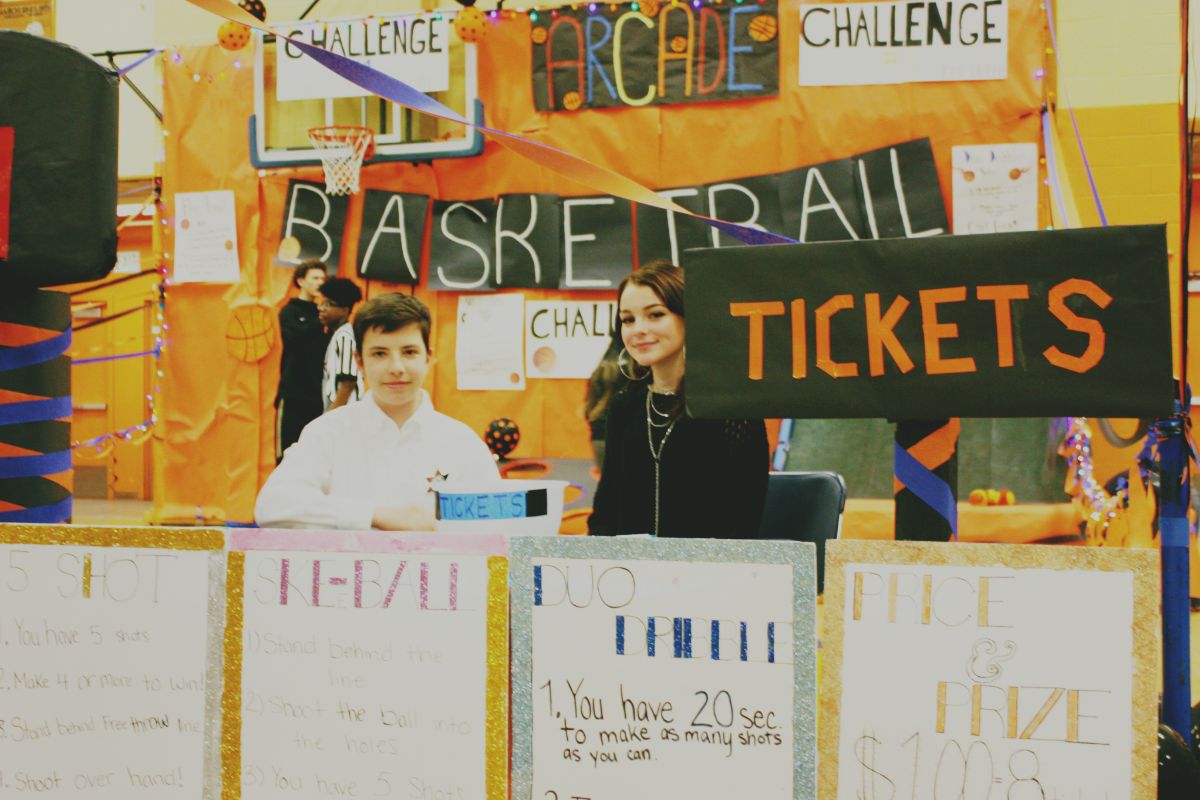 CHALLENGE
ARCADE
CHALLENGE
BASKETBALL
CHALL
TICKETS
TICKETS
5 SHOT
1. You have 5 shots
2. Make 4 or more to win!
3. Stand behind Freethrow line
4. Shoot over hand!
SKEE-BALL
1) Stand behind the
line
2) Shoot the ball into
the holes
3) You have 5 Shots
DUO
DRIBBLE
1. You have 20 sec.
to make as many shots
as you can.
PRICE
&
PRIZE
$1.00=8